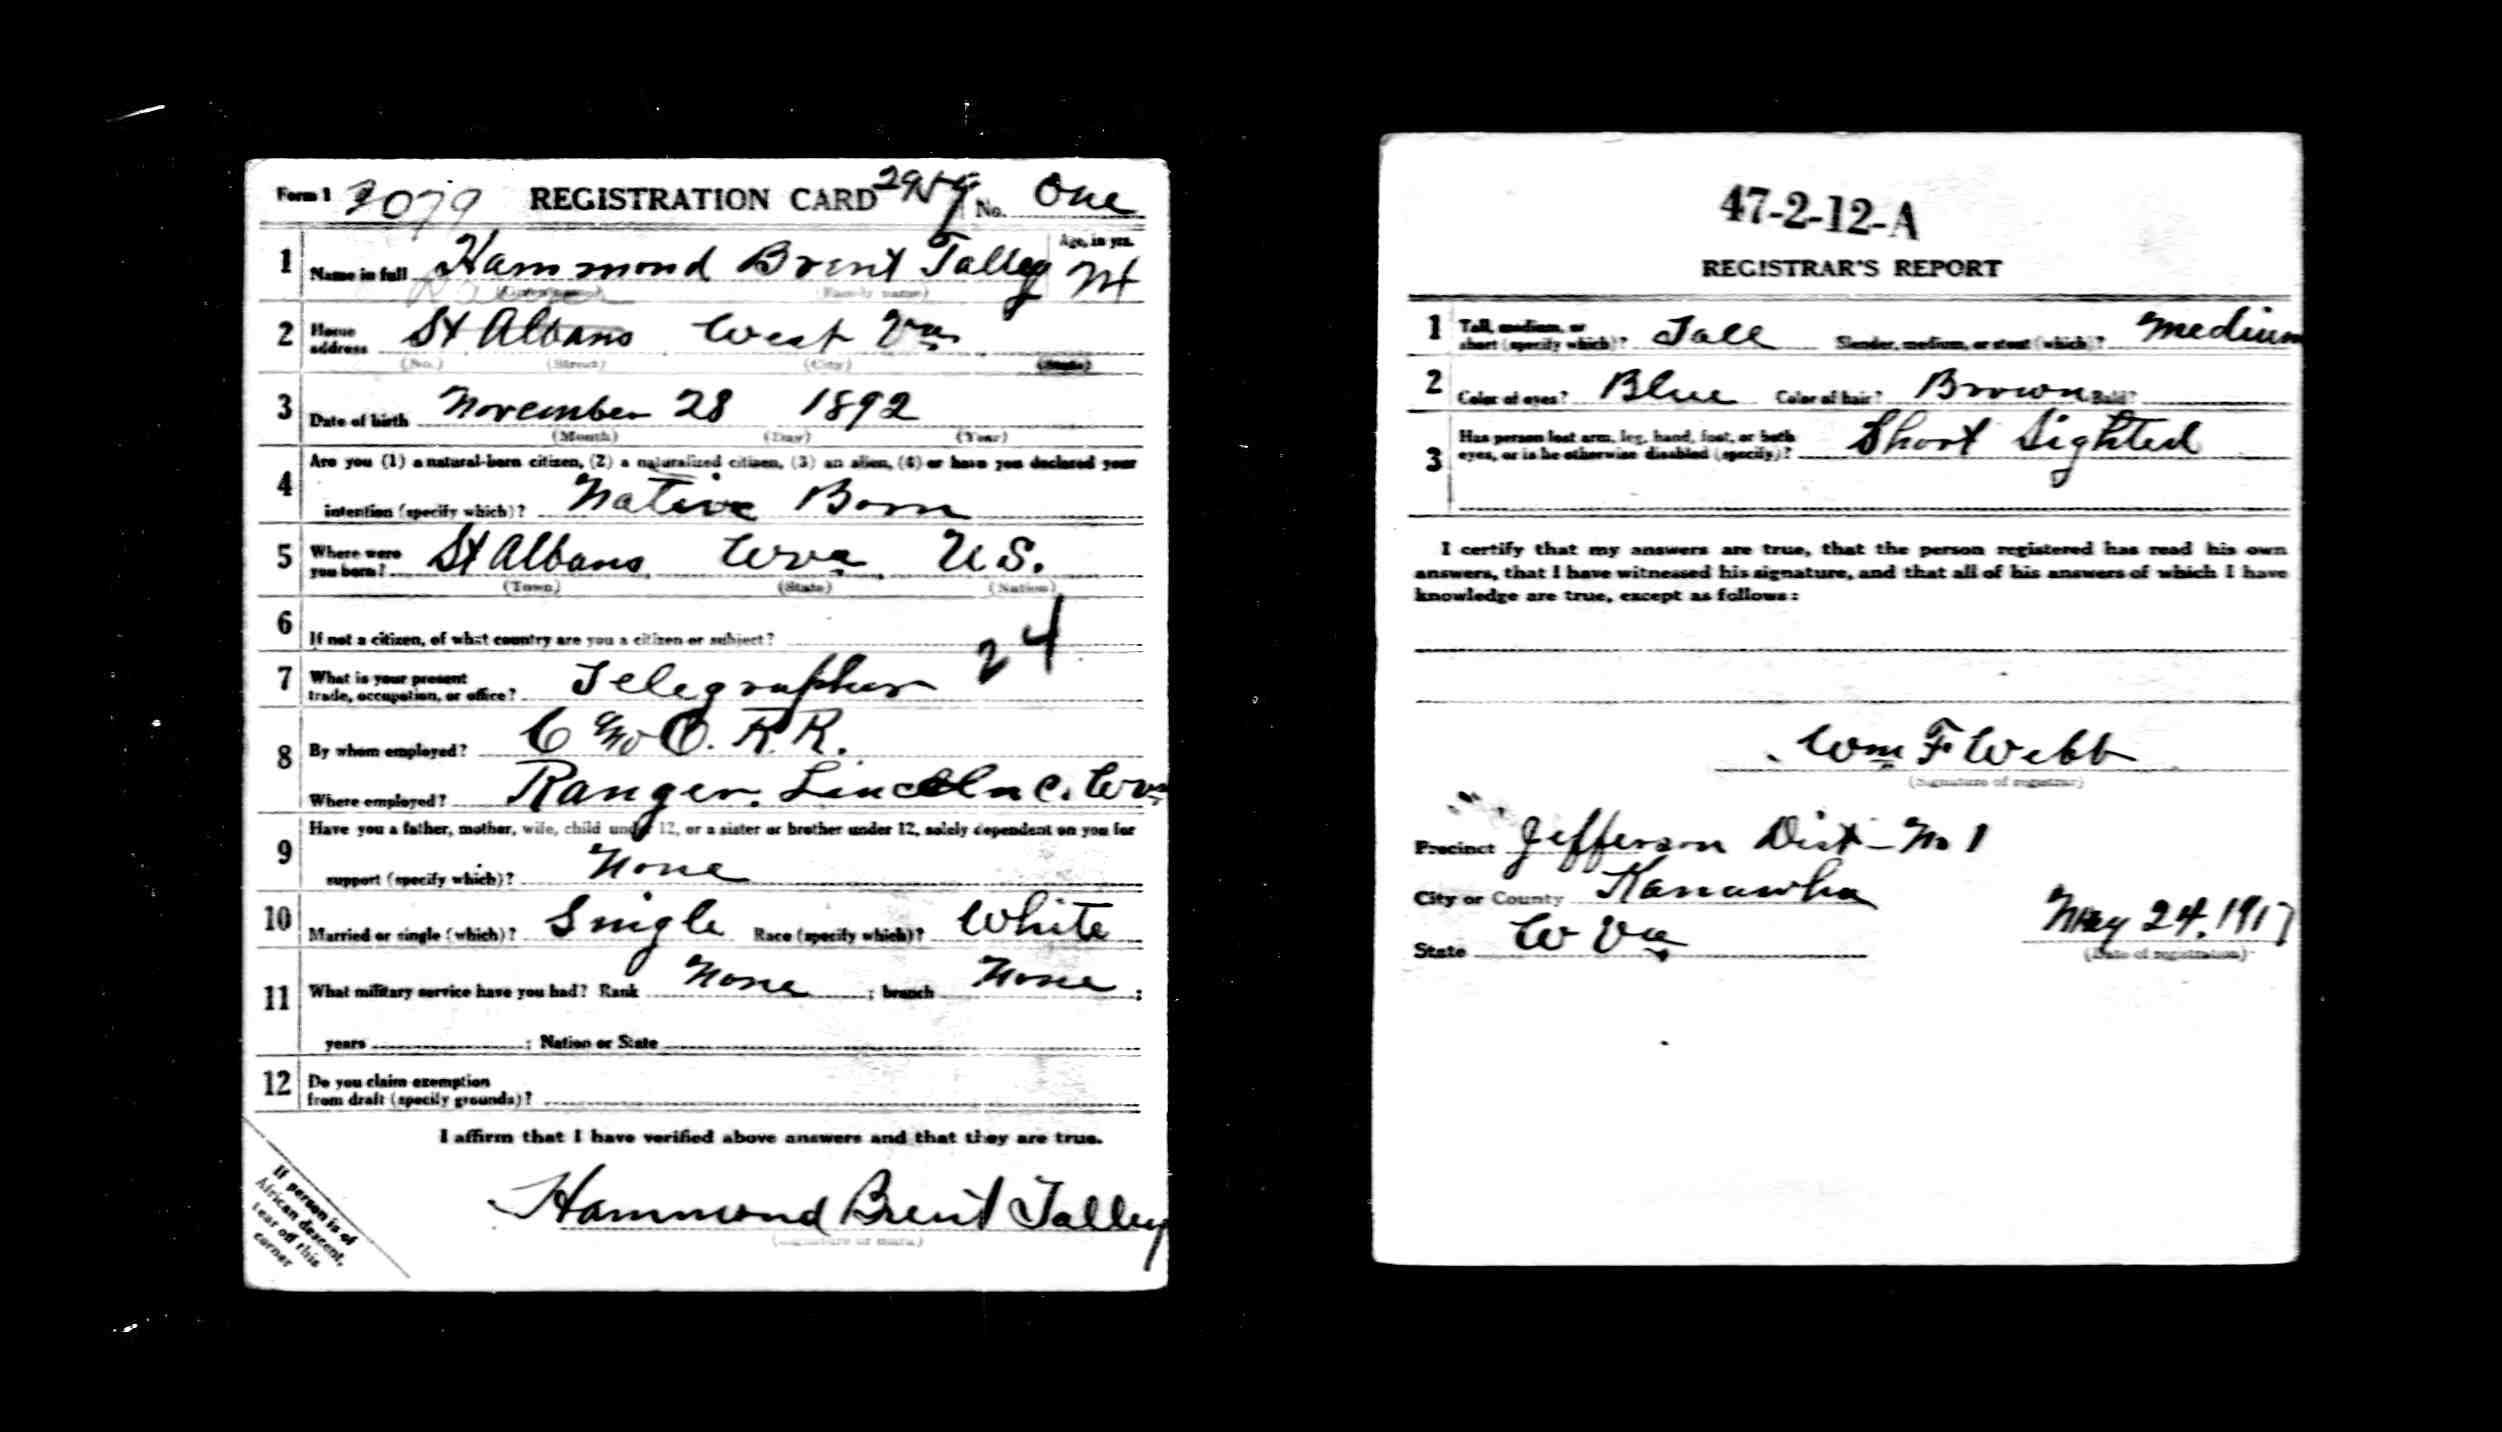 Form 1 3079 REGISTRATION CARD No. One
1 Name in full Hammond Brent Talley Age, in yrs.
(Family name)
2 Home address St Albans West Va
(No.) (Street) (City) (State)
3 Date of birth November 28 1892
(Month) (Day) (Year)
4 Are you (1) a natural-born citizen, (2) a naturalized citizen, (3) an alien, (4) or have you declared your
intention (specify which)? Native Born
5 Where were you born? St Albans Wva U.S.
(Town) (State) (Nation)
6 If not a citizen, of what country are you a citizen or subject?
24
7 What is your present trade, occupation, or office? Telegrapher
8 By whom employed? C & O. R.R.
Where employed? Ranger. Lincoln C. Wva
9 Have you a father, mother, wife, child under 12, or a sister or brother under 12, solely dependent on you for
support (specify which)? None
10 Married or single (which)? Single Race (specify which)? White
11 What military service have you had? Rank None ; branch None ;
years ; Nation or State
12 Do you claim exemption from draft (specify grounds)?
I affirm that I have verified above answers and that they are true.
Hammond Brent Talley
(Signature or mark)
If person is of
African descent,
tear off this
corner
47-2-12-A
REGISTRAR'S REPORT
1 Tall, medium, or short (specify which)? Tall Slender, medium, or stout (which)? Medium
2 Color of eyes? Blue Color of hair? Brown Bald?
3 Has person lost arm, leg, hand, foot, or both eyes, or is he otherwise disabled (specify)? Short Sighted
I certify that my answers are true, that the person registered has read his own
answers, that I have witnessed his signature, and that all of his answers of which I have
knowledge are true, except as follows:
Wm F Webb
(Signature of registrar)
Precinct Jefferson Dist - No 1
City or County Kanawha
State W Va
May 24, 1917
(Date of registration)